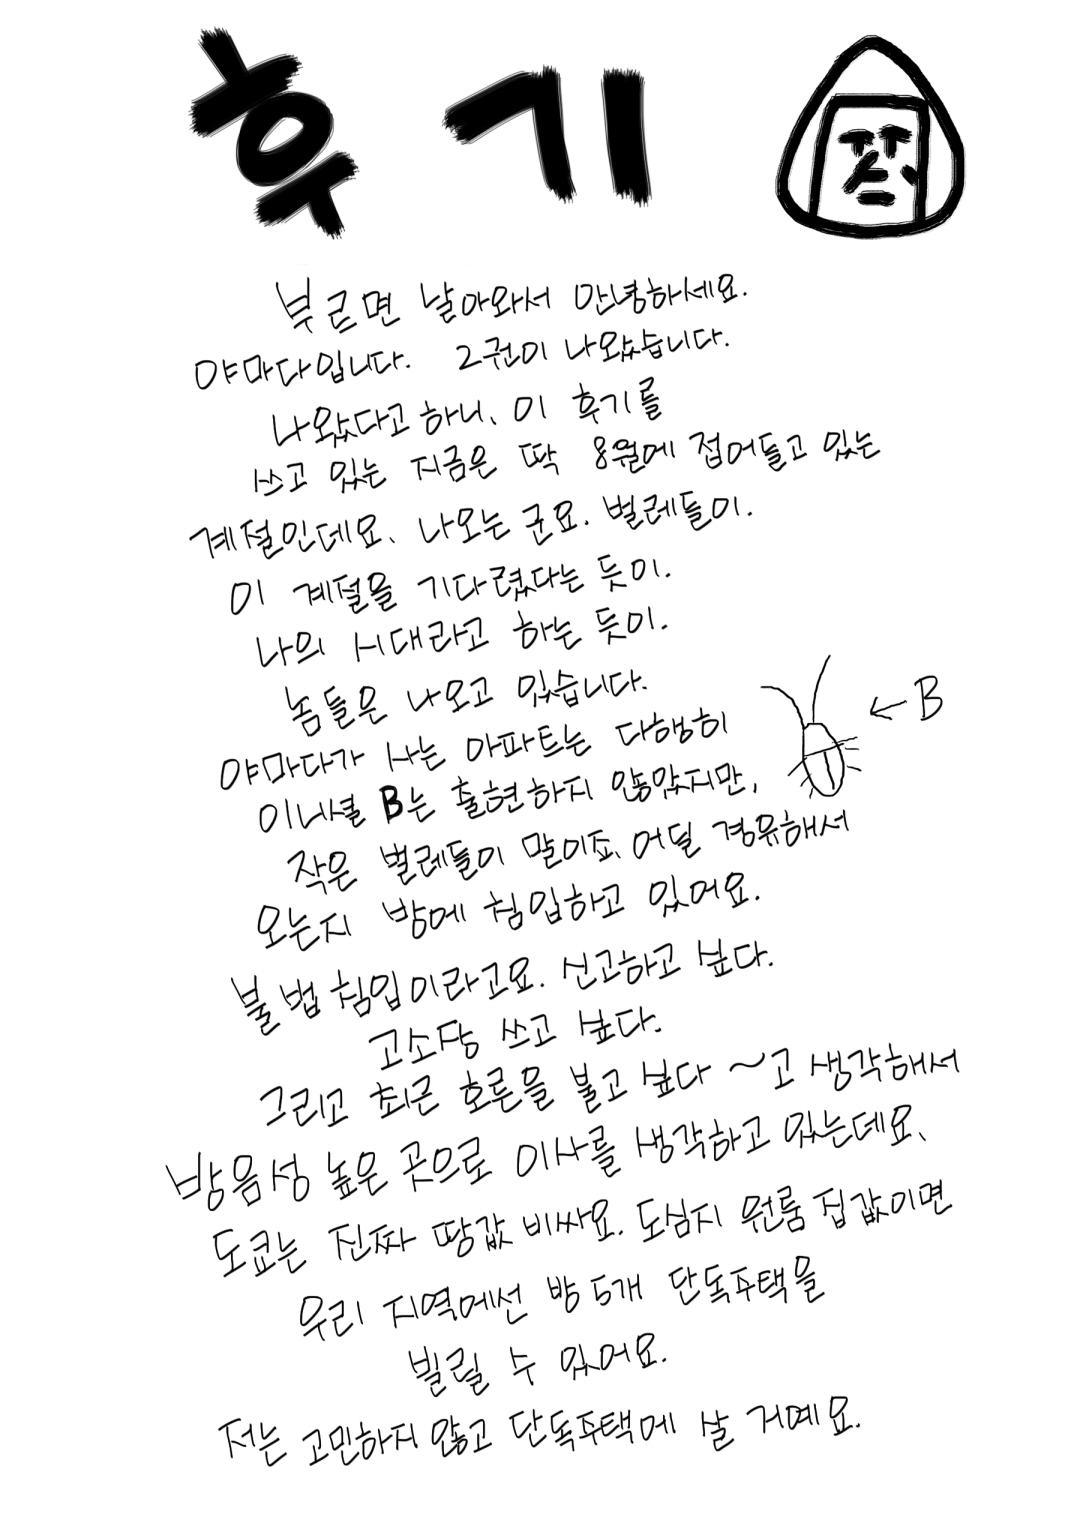 후기
부르면 날아와서 안녕하세요.
야마다입니다. 2권이 나왔습니다.
나왔다고 하니, 이 후기를
쓰고 있는 지금은 딱 8월에 접어들고 있는
계절인데요, 나오는군요. 벌레들이.
이 계절을 기다렸다는 듯이.
나의 시대라고 하는 듯이.
놈들은 나오고 있습니다.
야마다가 사는 아파트는 다행히
이니셜 B는 출현하지 않았지만,
작은 벌레들이 말이죠, 어딜 경유해서
오는지 방에 침입하고 있어요.
불법침입이라고요. 신고하고 싶다.
고소장 쓰고 싶다.
그리고 최근 호른을 불고 싶다~고 생각해서
방음성 높은 곳으로 이사를 생각하고 있는데요,
도쿄는 진짜 땅값 비싸요. 도심지 원룸 집값이면
우리 지역에선 방 5개 단독주택을
빌릴 수 있어요.
저는 고민하지 않고 단독주택에 살 거예요.
←B